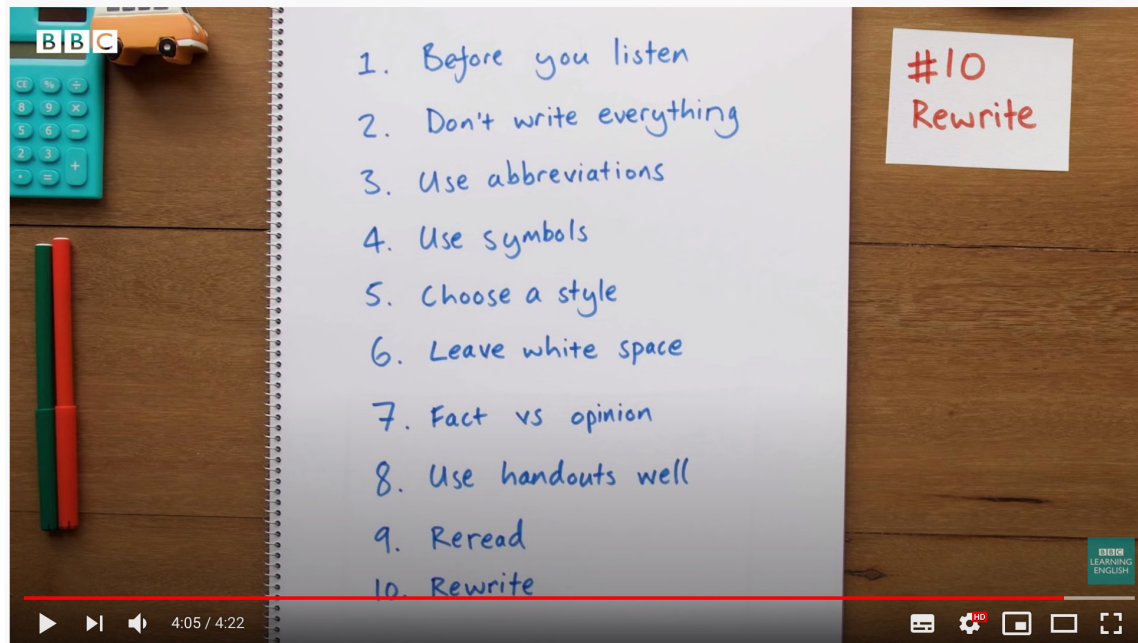 BBC
CE % ÷
8 9 ×
5 6 −
2 3 +
· =
1. Before you listen
2. Don't write everything
3. Use abbreviations
4. Use symbols
5. Choose a style
6. Leave white space
7. Fact vs opinion
8. Use handouts well
9. Reread
10. Rewrite
#10
Rewrite
BBC
LEARNING
ENGLISH
4:05 / 4:22
HD